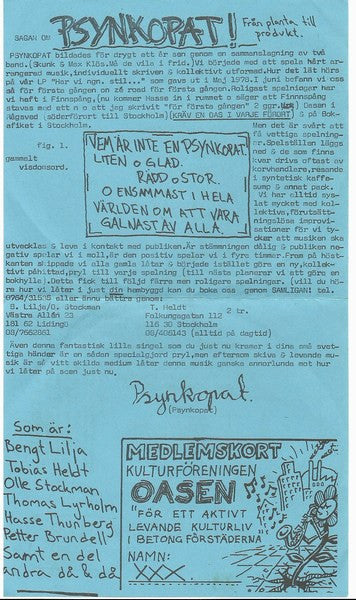 SAGAN OM PSYNKOPAT! Från planta till produkt.
PSYNKOPAT bildades för drygt att år sen genom en sammanslagning av två
band.(Skunk & Max Klös.Nå de vila i frid.)Vi började med att spela hårt ar-
rangerad musik,individuellt skriven & kollektivt utformad.Hur det lät hörs
på vår LP "Har vi ngn. stil..." som gavs ut i Maj 1978.I juni befann vi oss
så för första gången on zä road för första gången.Roligast spelningar har
vi haft i Finnspång,(nu kommer Hasse in i rummet o säger att Finnspång
stavas med ett n o att jag skrivit "för första gången" 2 ggr.) Oasen i
Rågsved (söderförort till Stockholm)(KRÄV EN OAS I VARJE FÖRORT) & på Bok-
afiket i Stockholm.
fig. 1.
gammalt
visdomsord.
VEM ÄR INTE EN PSYNKOPAT.
LITEN O GLAD.
RÄDD O STOR.
O ENSAMMAST I HELA
VÄRLDEN OM ATT VARA
GALNAST AV ALLA.
Men det är svårt att
få vettiga spelning-
ar.Spelställen läggs
ned & de som finns
kvar drivs oftast av
korvhandlare,resande
i syntetisk kaffe-
sump & annat pack.
Vi har alltid sys-
lat mycket med kol-
lektiva,förutsätt-
ningslösa improvisa-
tioner för vi tyc-
ker att musiken ska
utvecklas & leva i kontakt med publiken.Är stämningen dålig & publiken ne-
gativ spelar vi i moll,är den positiv spelar vi i fyra timmar.Från på höst-
kanten slippade vi alla gamla låtar & började istället göra en ny,kollek-
tivt påhittad,pryl till varje spelning (till nästa planerar vi att göra en
bokhylla).Detta fick till följd färre men roligare spelningar. (vill du hö-
ra hur vi låter i just din hembyggd kan du boka oss genom SAMLIGAN! tel.
eller ännu bättre genom:
B. Lilja/O. Stockman
Västra Allén 23
161 62 lidingö
08/7652861
T. Heldt
Folkungagatan 112
116 30 Stockholm
2 tr.
08/406143 (alltid på dagtid)
Även denna fantastisk lilla singel som du just nu kramar i dina små svet-
tiga händer är en sådan specialgjord pryl,men eftersom skiva & levande mu-
sik är så vitt skilda medium låter denna musik ganska annorlunda mot hur
vi låter på scen just nu.
Psynkopat.
(Psynkopat)
Som är:
Bengt Lilja
Tobias Heldt
Olle Stockman
Thomas Lyrholm
Hasse Thunberg
Petter Brundell
Samt en del
andra då & då
MEDLEMSKORT
KULTURFÖRENINGEN
OASEN
"FÖR ETT AKTIVT
LEVANDE KULTURLIV
I BETONGFÖRSTÄDERNA"
NAMN:
XXX.